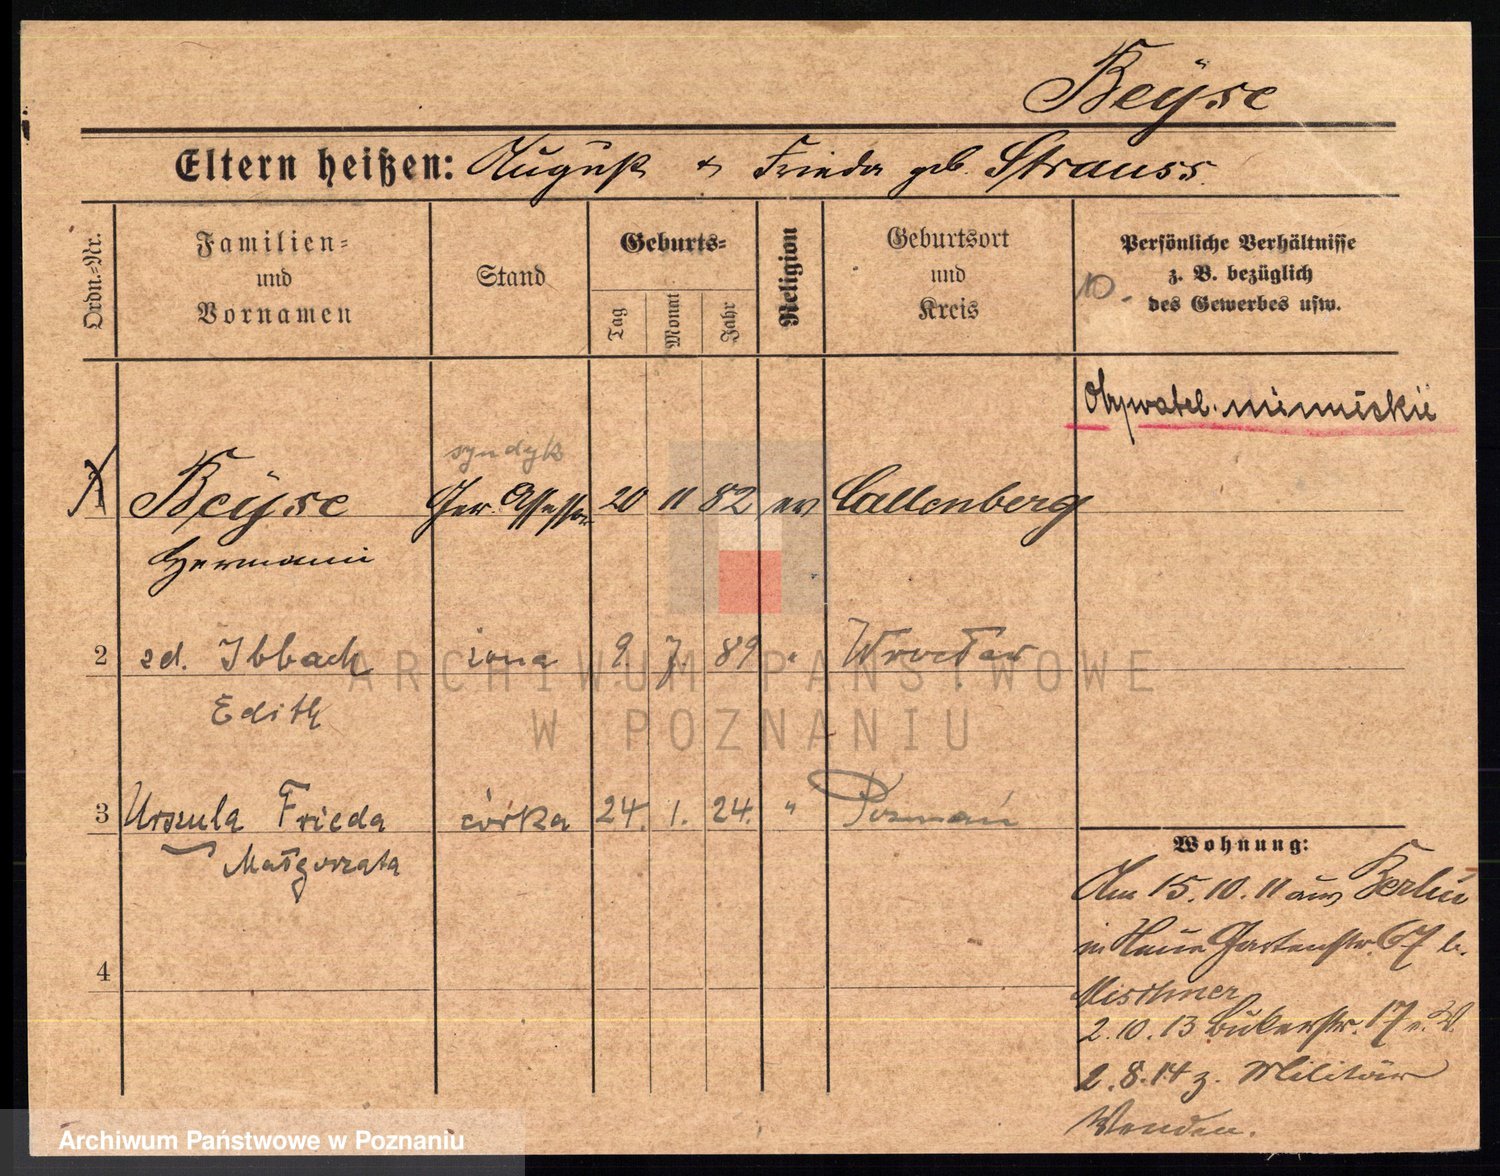 Beÿse
Eltern heißen: August & Frieda geb. Strauss.
Ordn.=Nr.
Familien=
und
Vornamen
Stand
Geburts=
Tag
Monat
Jahr
Religion
Geburtsort
und
Kreis
Persönliche Verhältnisse
z. B. bezüglich
des Gewerbes usw.
10.
Obywatel. niemiecki
syndyk
Beÿse Ger. Assessor 20 11 82 ev Callenberg
Hermann
2 zd. Ibbach żona 9. 7. 89 " Wrocław
Edith
3 Urszula Frieda córka 24. 1. 24. " Poznań
Małgorzata
4
Wohnung:
Am 15.10.11 aus Berlin
in Neue Gartenstr. 67 b.
2.10.13 Bukerstr. 17 e. W.
2.8.14 z. Militär
Wenden.
ARCHIWUM PAŃSTWOWE
W POZNANIU
Archiwum Państwowe w Poznaniu